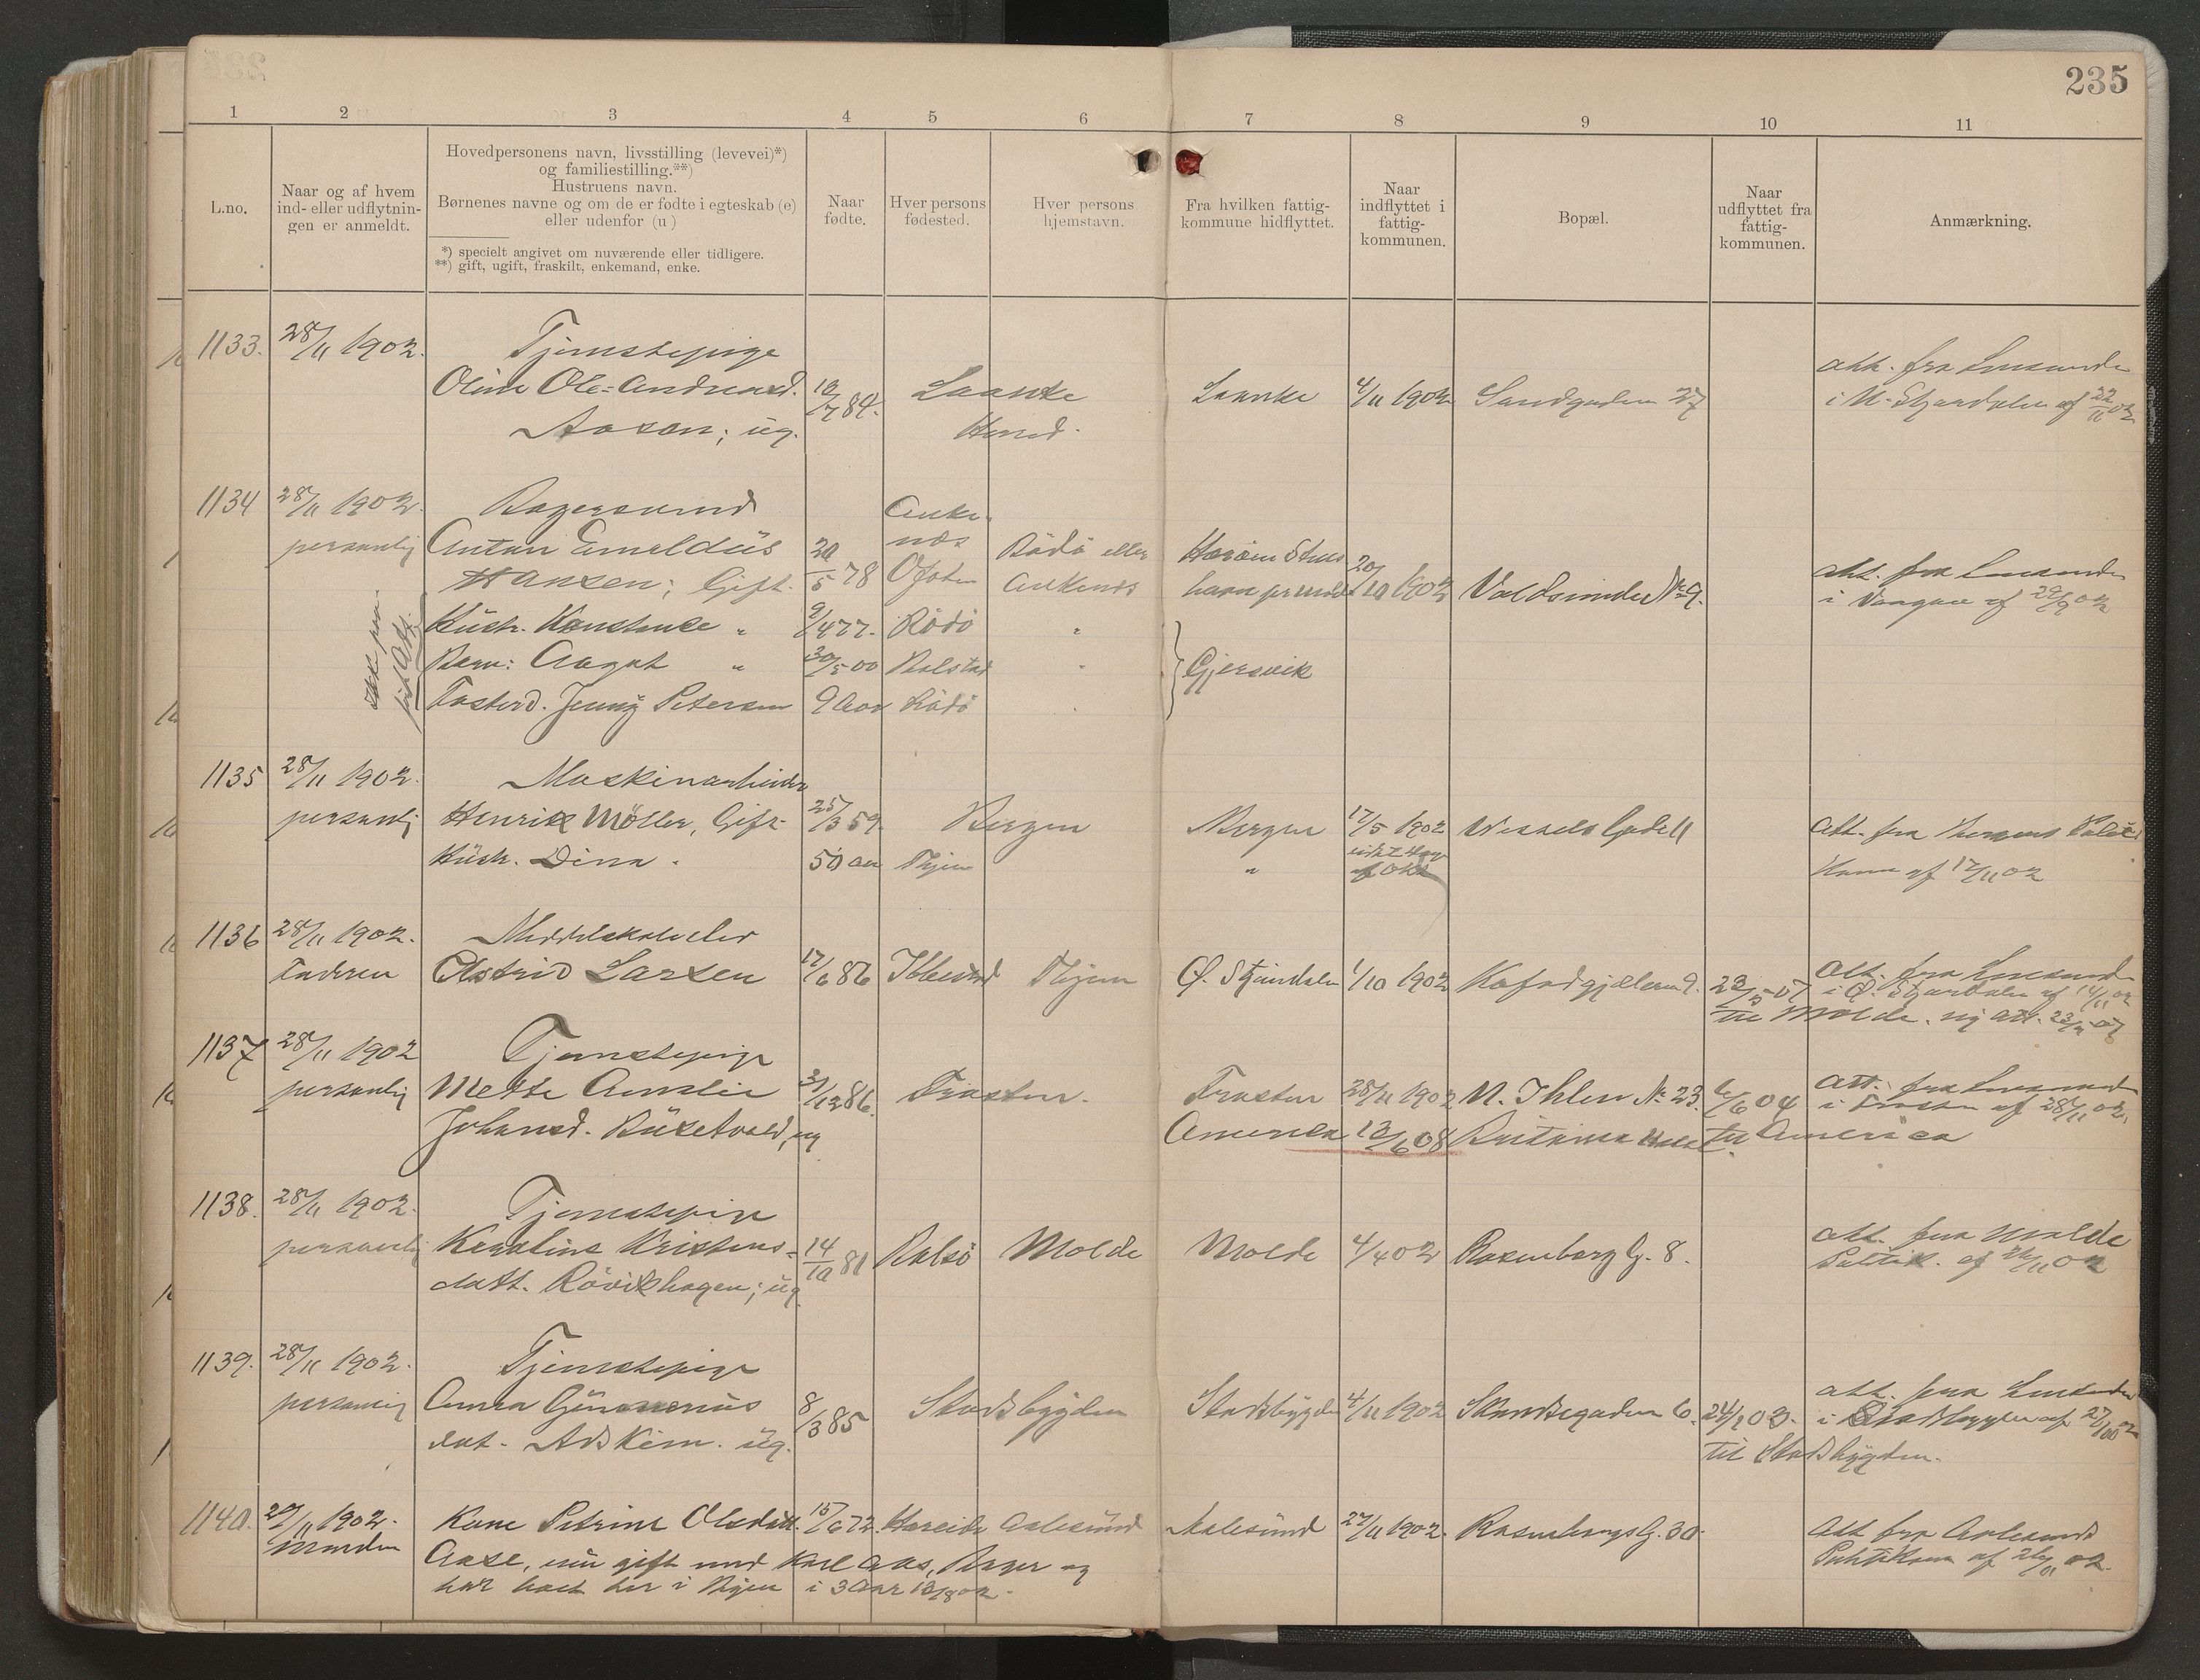 235
1 2 3 4 5 6 7 8 9 10 11
L.no.
Naar og af hvem
ind- eller udflytnin-
gen er anmeldt.
Hovedpersonens navn, livsstilling (levevei)*)
og familiestilling.**)
Hustruens navn.
Børnenes navne og om de er fødte i egteskab (e)
eller udenfor (u)
*) specielt angivet om nuværende eller tidligere.
**) gift, ugift, fraskilt, enkemand, enke.
Naar
fødte.
Hver persons
fødested.
Hver persons
hjemstavn.
Fra hvilken fattig-
kommune hidflyttet.
Naar
indflyttet i
fattig-
kommunen.
Bopæl.
Naar
udflyttet fra
fattig-
kommunen.
Anmærkning.
1133. 28/11 1902. Tjenestepige
Oline Ole-Andreasd. 84. Laanke Laanke 4/11 1902 Sandgaden 27 att. fra Lensmanden
Aasan; ug. Herred. i N. Stjørdalen af 22/11 02
1134 28/11 1902. Bagersvend
personlig Anton Emeldius
Hansen; Gift. 20/5 78 Ofoten Ankenes 20/10 1902 Voldsminde No 9. att. fra Lensmanden
Rödö eller
Hustr. Konstanse " 9/4 77. Rödö "
Barn: Aagot " 30/5 00 Balstad " Gjersvik
Jenny Petersen 9 Aar Rödö
1135 28/11 1902. Maskinarbeider
personlig Henrik Möller, Gift 25/3 59. Bergen Bergen 17/5 1902 Wessels Gade 11 att. fra Bergens
Hustr. Dina " 50 aar Thjem " af 17/11 02
1136 28/11 1902. Middelskoleelev
Faderen Astrid Larsen 17/6 86 Thjem Ø. Stjørdalen 1/10 1902 att. fra Lensmand
i Ø. Stjørdalen af 14/11 02
til Molde. ny att. 23/5 07
1137 28/11 1902 Tjenestepige
personlig Mette Amalie 31/12 86. Frosten. Frosten 28/11 1902 N. Ihlen No 23. 6/6 04 att. fra Lensmand
i Frosten af 28/11 02.
Johansd. Büsetvold, ug America 13/6 08 Britania Hotel. til America
1138. 28/11 1902. Tjenestepige
personlig Karoline Kristens- 14/10 81 Bolsö Molde Molde 4/4 02 Rosenborg G. 8. att. fra Molde
datt. Rövikhagen; ug. Politik. af 02
1139. 28/11 1902. Tjenestepige
personlig Anna Gunnerius 8/3 85 Stadsbygden Stadsbygden 4/11 1902 Skandsegaden 6. 24/1 03. att. fra Lensmanden
dat. Askim. ug. i Stadsbygden af
til Stadsbygden.
1140. 29/11 1902. Kone Petrine Olsdatt. 15/6 72. Hareide Aalesund Aalesund 27/11 1902. Rosenborgs G. 30. Att fra Aalesunds
Manden Aase, nu gift med Karl Aas, Bager og Politikam af 26/11 02.
har boet her i Byen i 3 Aar 12/8 02.